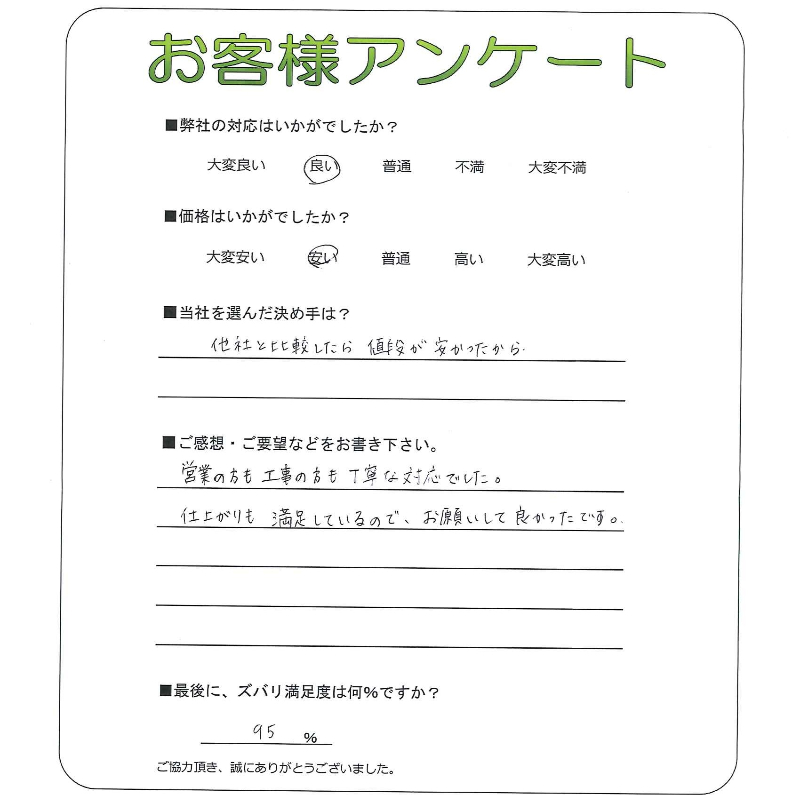 お客様アンケート
■弊社の対応はいかがでしたか？
大変良い 良い 普通 不満 大変不満
■価格はいかがでしたか？
大変安い 安い 普通 高い 大変高い
■当社を選んだ決め手は？
他社と比較したら 値段が 安かったから.
■ご感想・ご要望などをお書き下さい。
営業の方も 工事の方も 丁寧な対応でした。
仕上がりも 満足しているので、お願いして 良かったです。
■最後に、ズバリ満足度は何％ですか？
95 ％
ご協力頂き、誠にありがとうございました。